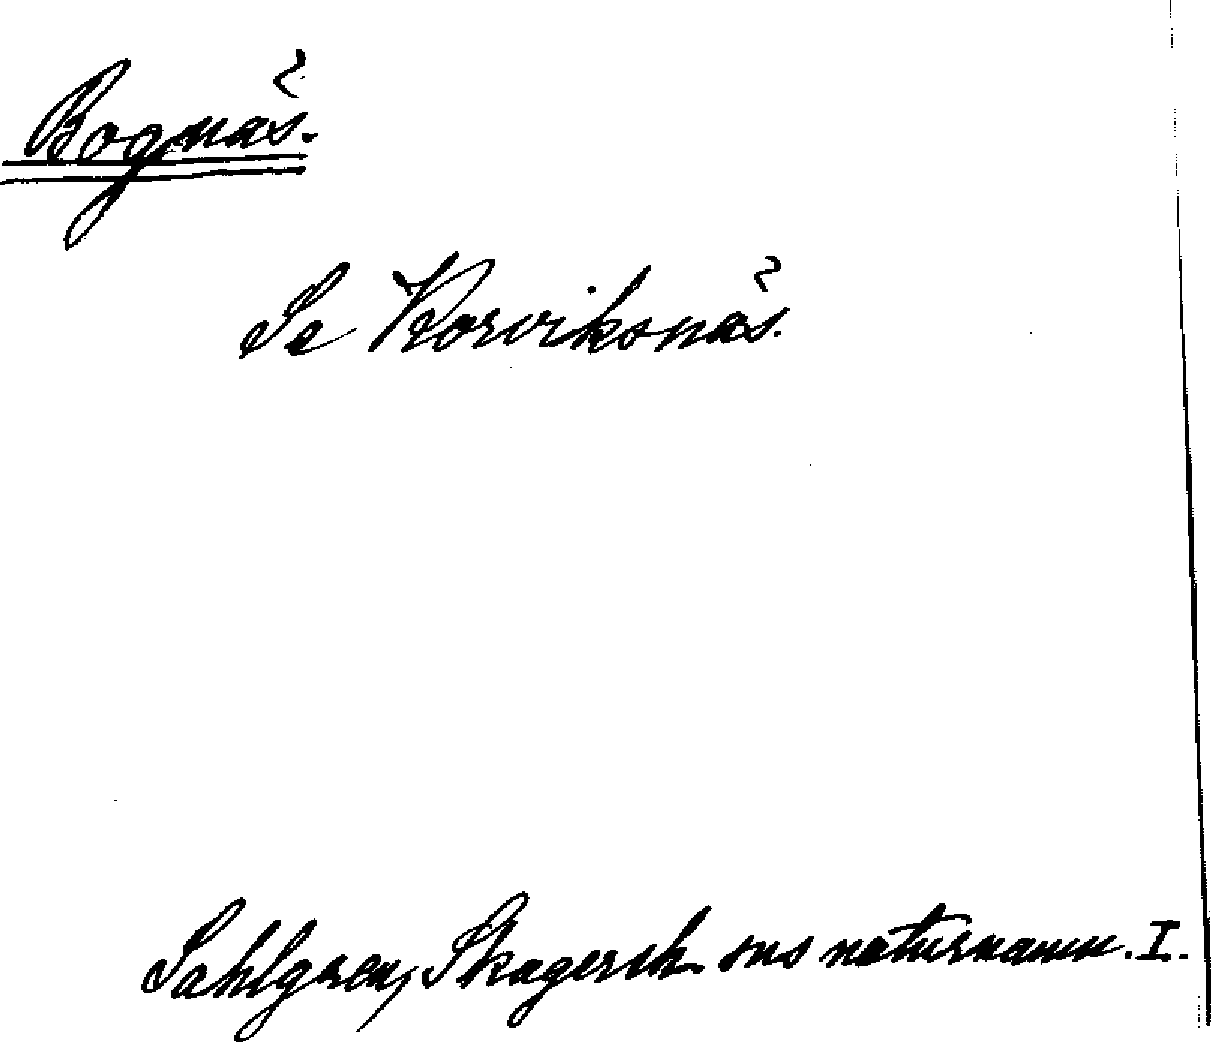 Bognäs.
Se Korviksnäs.
Sahlgren, Skagersh. sns naturnamn. I.